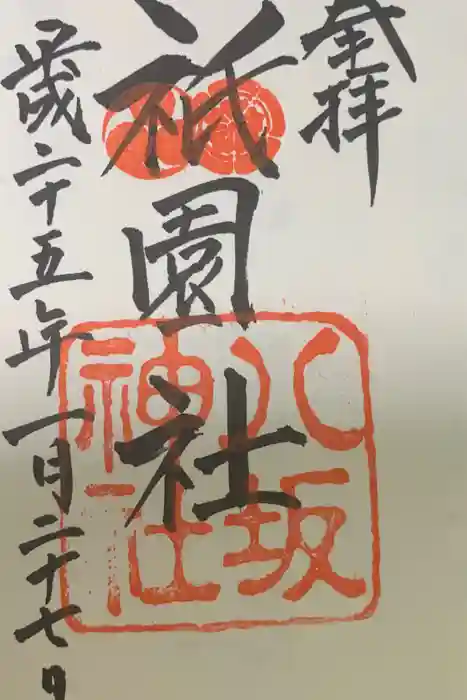 奉拝
祇園社
八坂
神社
歳二十五年一月二十七日